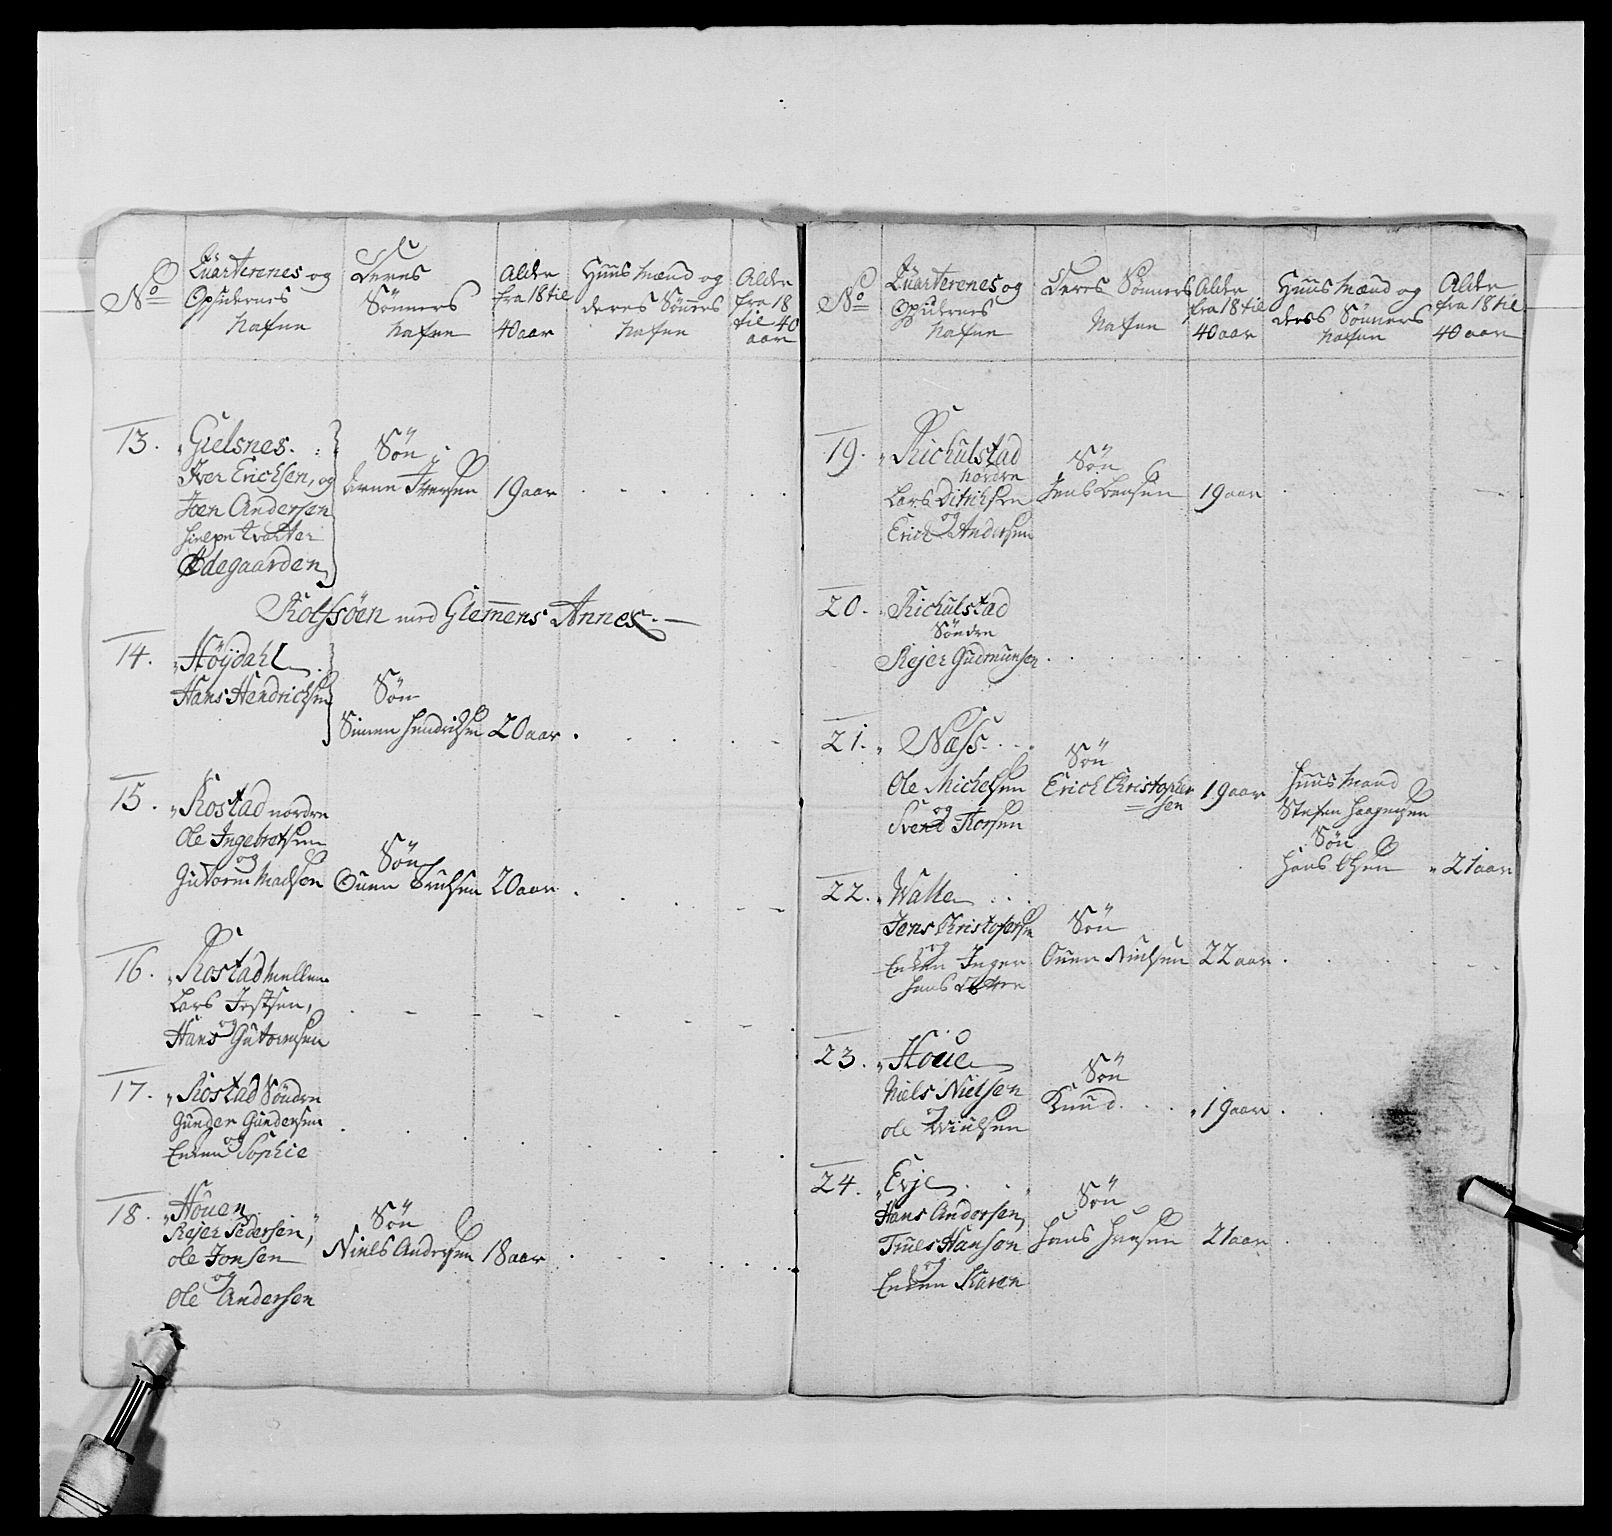 No
Quarterenes og
Opsidernes
Nafne
Deres
Sönners
Nafne
Alder
fra 18 til
40 aar
Huus Mænd og
deres Sönners
Nafne
Alder
fra 18
til 40
aar
13. Gielsnes.
Iver Erichsen, og
Joen Andersen
hielpe Qvarter
Ödegaarden
Sön
Arne Iversen 19 aar
Rolfsöen med Glemmens Annex.
14. Höijdahl
Hans Hendrichsen
Sön
Simen Hendrichsen 20 aar.
15. Rostad nordre
Ole Ingebretsen
og
Gutorm Madsen
Sön
Ouen Truelsen 20 aar.
16. Rostad mellem
Lars Jestsen,
og
Hans Gutormsen
17. Rostad Söndre
Gunder Gundersen
og
Enken Sophie
18. Houen
Rejer Pedersen,
Ole Jonsen
og
Ole Andersen
Sön
Niels Andersen 18 aar
No
Quarterenes og
Opsidernes
Nafne
Deres Sönners
Nafne
Alder
fra 18 til
40 aar
Huus Mænd og
deres Sönners
Nafne
Alder
fra 18 til
40 aar
19. Richulstad
nordre
Lars Ditrichsen
og
Erich Andersen
Sön
Jens Larsen 19 aar
20. Richulstad
Söndre
Rejer Gudmunsen
21. Næss
Ole Michelsen
og
Svend Thorsen
Sön
Erich Christopher
=sen
19 aar
Huus Mand
Stefen
Sön
Hans Olsen 21 aar
22. Walle
Jens Christophersen
og
Enken Inger
Hans
Sön
Ouen Nielsen 22 aar.
23. Houe
Niels Nielsen
Ole Nielsen
Sön
Knud 19 aar.
24. Evje
Hans Andersen,
Trues Hanson
og
Enken Karen
Sön
Hans Hansen 21 aar